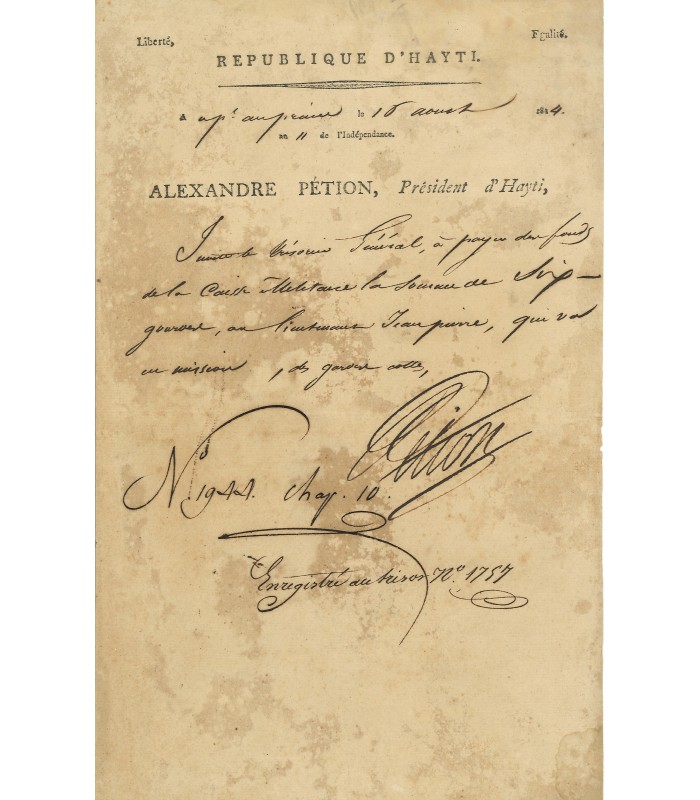 Liberté, Egalité.
REPUBLIQUE D'HAYTI.
A au prince le 16 aoust 1814.
an 11 de l'Indépendance.
ALEXANDRE PÉTION, Président d'Hayti,
Invite le Trésorier Général, à payer des fonds
de la Caisse Militaire la Somme de Six
gourdes, au lieutenant Jean pierre, qui va
en mission, des gardes cottes,
Pétion
No. 1944. Chap. 10.
Enregistré au trésor No. 1757